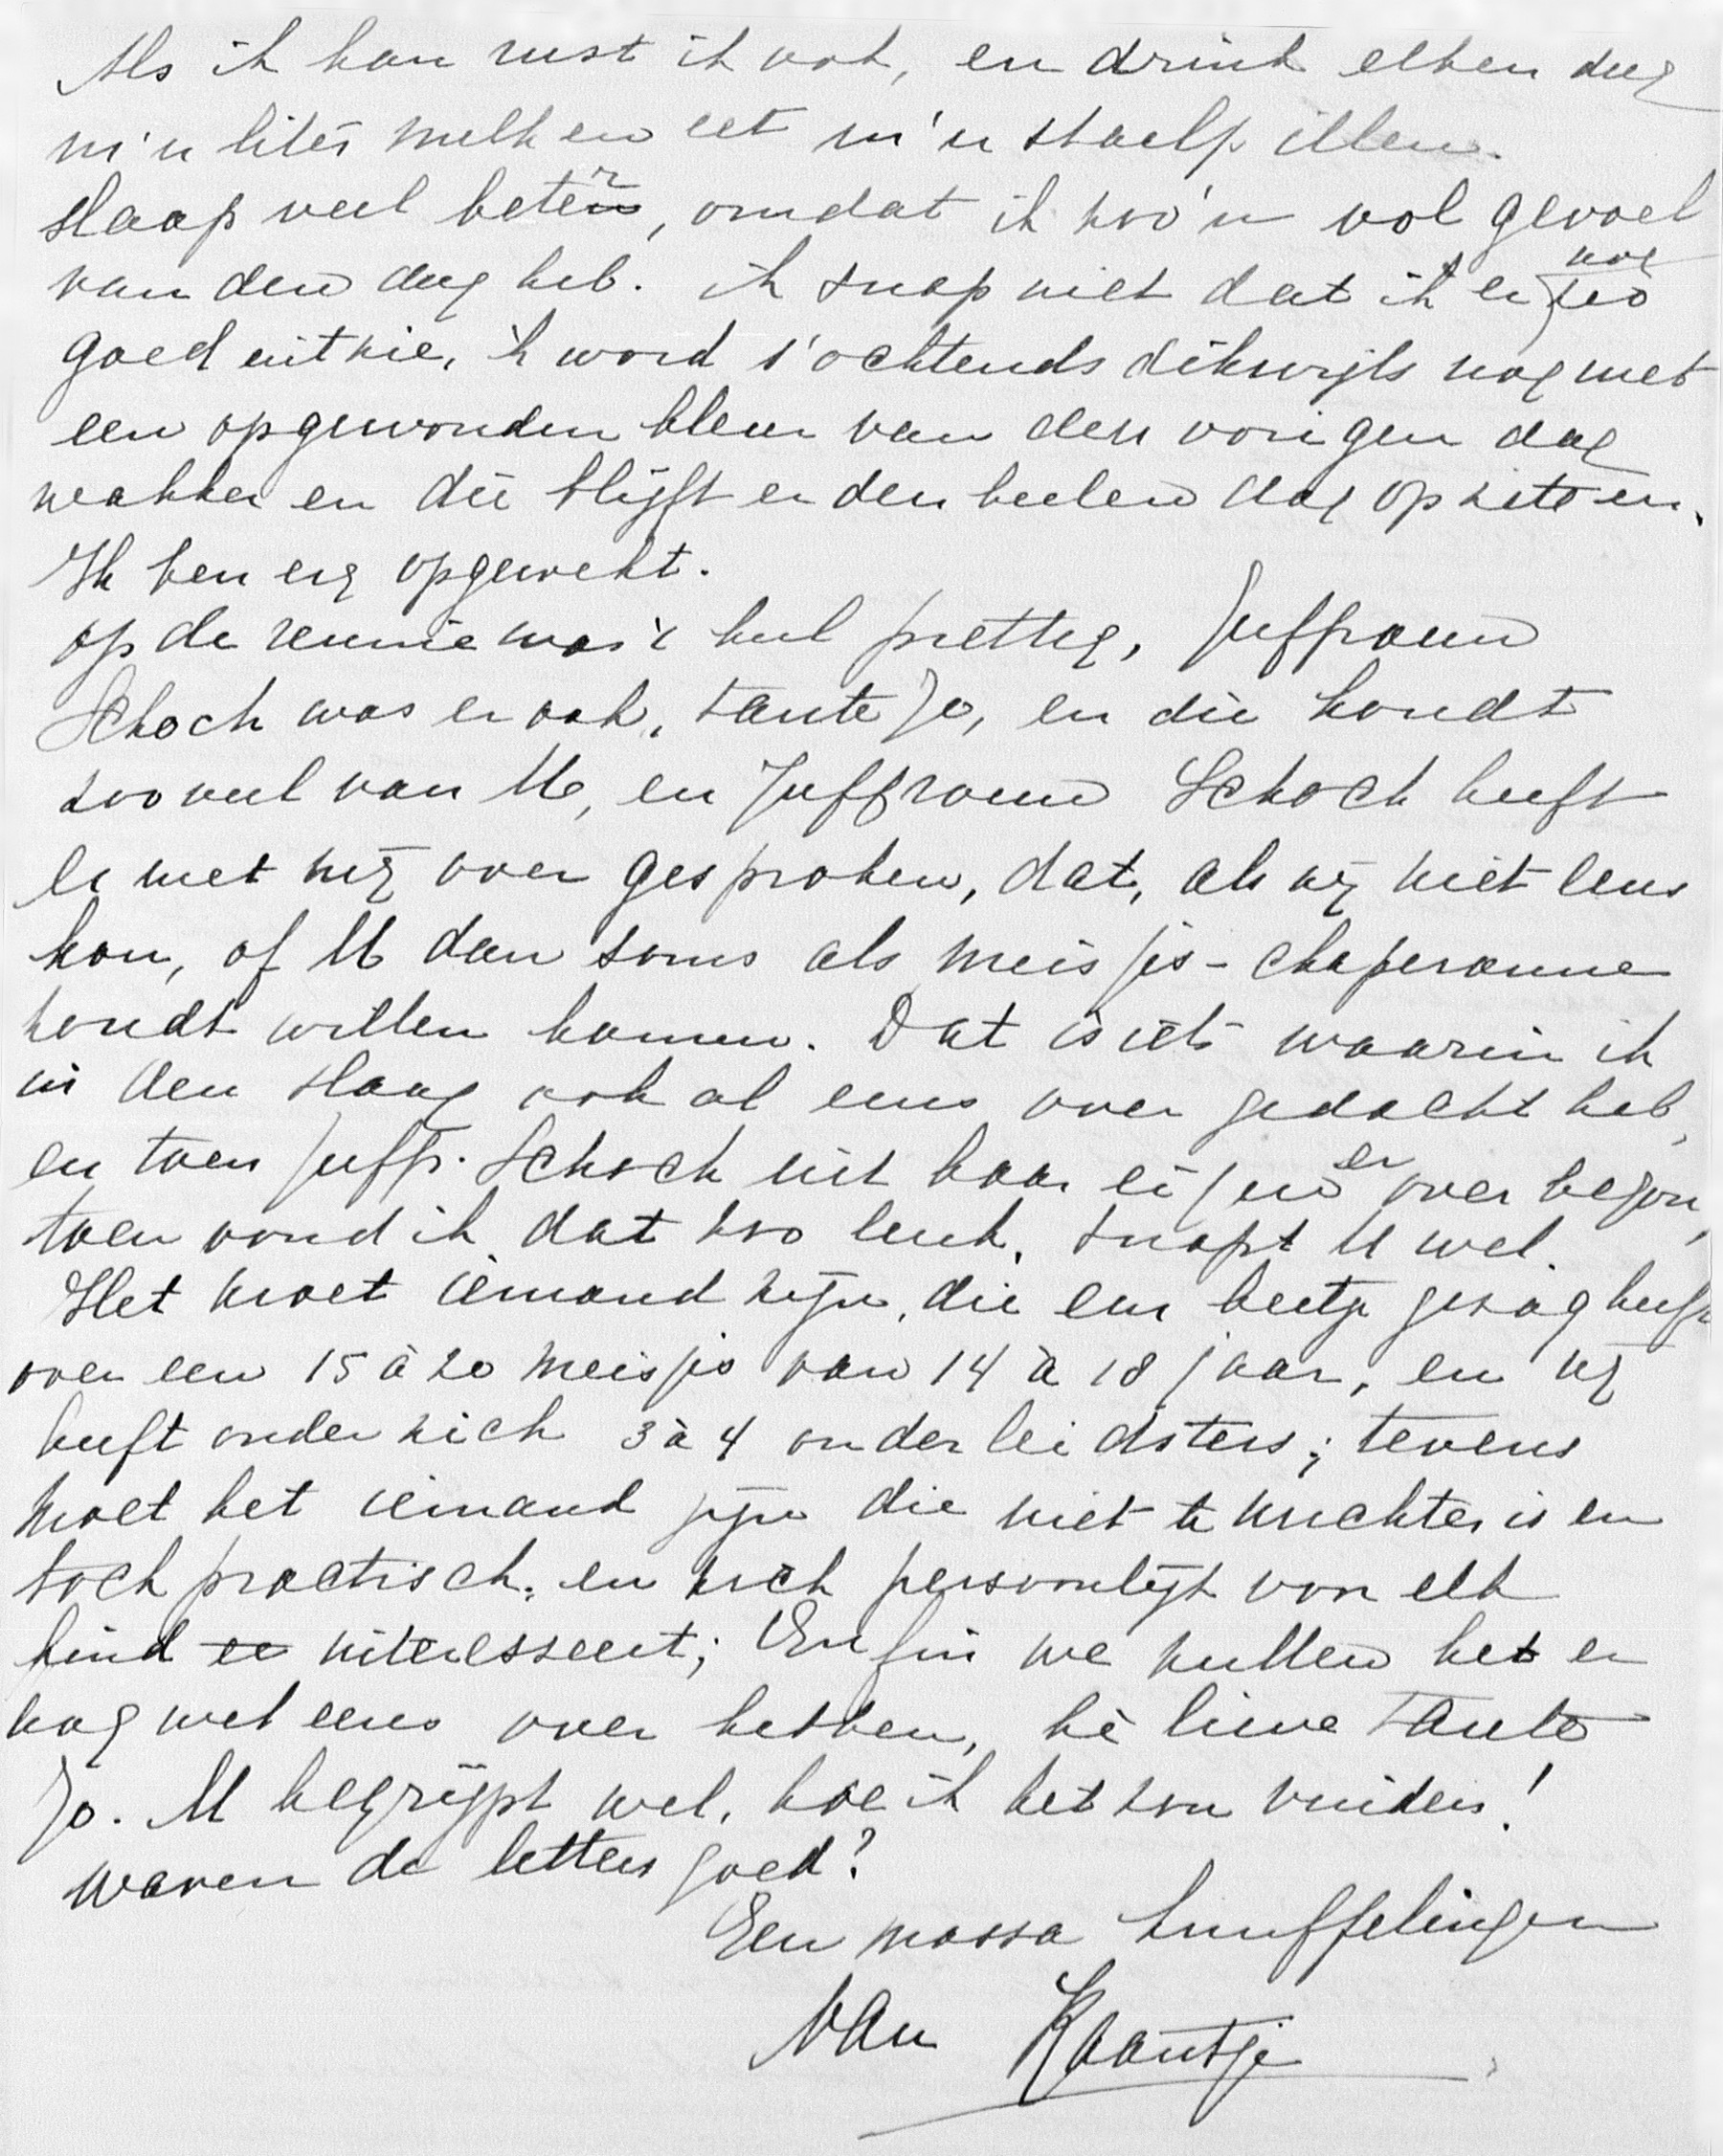 Als ik kan rust ik ook, en drink elken dag
m'n liter melk en eet m'n staalpillen.
slaap veel beter, omdat ik zoo'n vol gevoel
van den dag heb. ik snap niet dat ik er nog zoo
goed uitzie, 'k word s'ochtends dikwijls nog met
een opgewonden kleur van den vorigen dag
wakker en die blijft er den heelen dag op zitten.
Ik ben erg opgewekt.
op de reunie was 't heel prettig, Juffrouw
Schoch was er ook, tante Jo, en die houdt
zooveel van U, en Juffrouw Schoch heeft
er met mij over gesproken, dat, als zij niet eens
kon, of U dan soms als meisjes-chaperonne
zoudt willen komen. Dat is iets waarin ik
in den Haag ook al eens over gedacht heb,
en toen Juffr. Schoch uit haar eigen er over begon,
toen vond ik dat zoo leuk, snapt U wel.
Het moet iemand zijn, die een beetje gezag heeft
over een 15 à 20 meisjes van 14 à 18 jaar, en zij
heeft onder zich 3 à 4 onderleidsters; tevens
moet het iemand zijn die niet te nuchter is en
toch practisch, en zich persoonlijk voor elk
kind interesseert; Enfin we zullen het er
nog wel eens over hebben, hè lieve Tante
Jo. U begrijpt wel, hoe ik het zou vinden!
waren de letters goed?
Een massa knuffelingen
van Kaantje